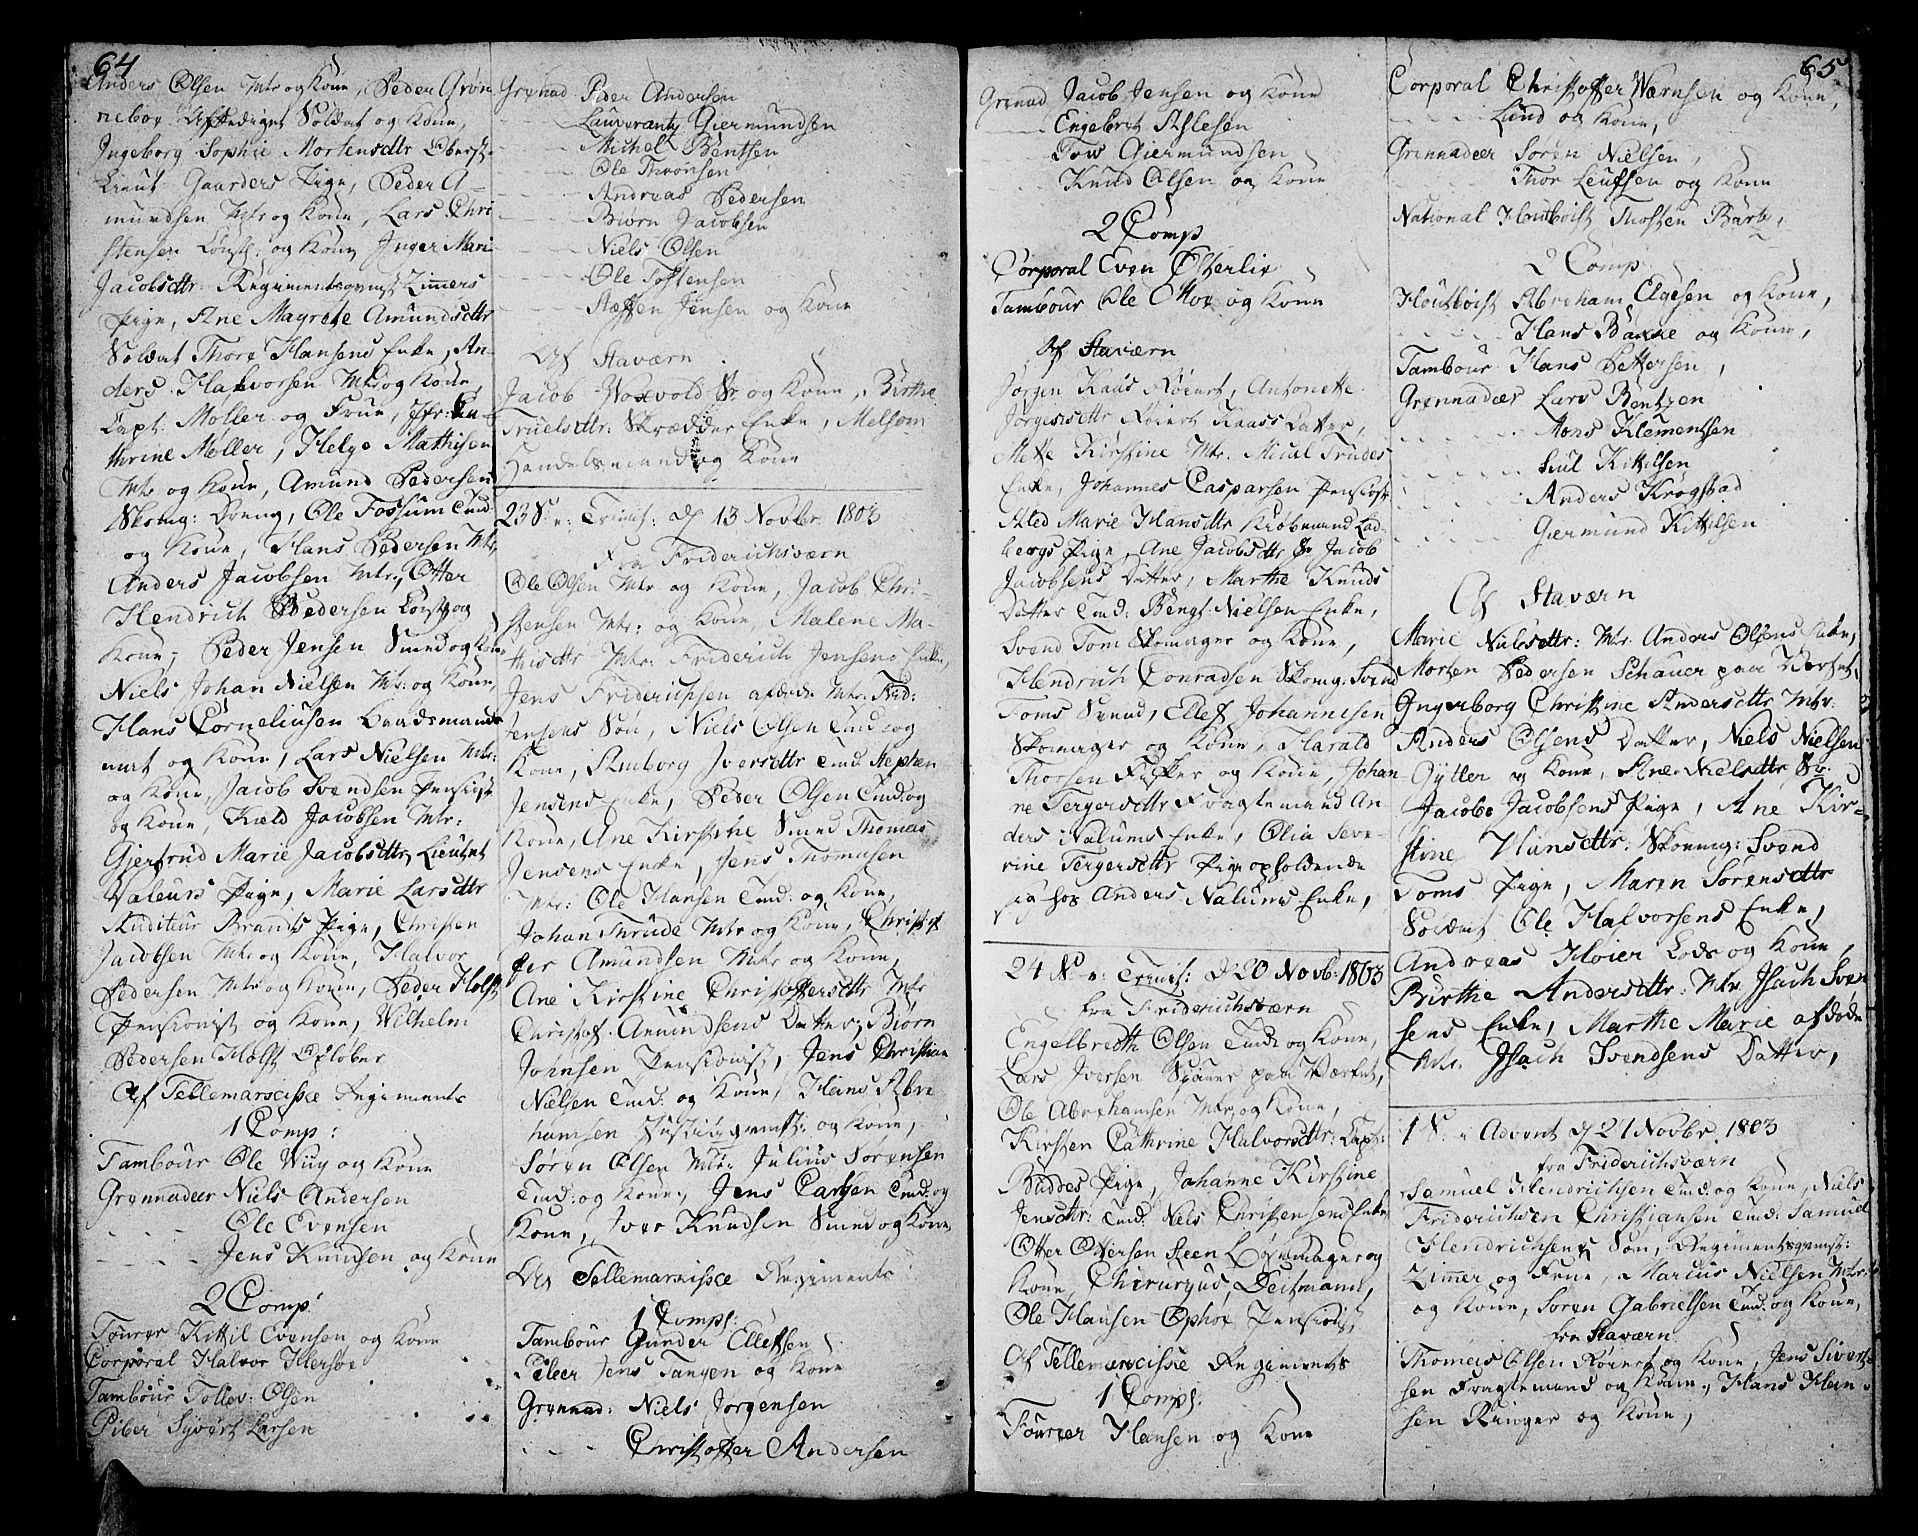 64
Anders Olsen Mtr og Kone, Peder Grøn
neboe Afskediget Soldat og Kone,
Ingeborg Sophie Mortensdttr Oberst
Lieut Gaarders Pige, Peder A-
mundsen Mtr og Kone, Lars Chri
stensen og Kone Inger Mari
Jacobsdttr: Regimentsqvmst Zimmers
Pige, Ane Magrete Amundsdttr
Soldat Thore Hansens Enke, An-
ders Halvorsen Mtr og Kone,
Capt: Møller og Frue, Jfr: Ca-
thrine Møller, Helge Mathisen
Mtr og Kone, Amund Pedersen
Skomg: Dreng, Ole Fossum Tmd
og Kone, Hans Pedersen Mtr,
Anders Jacobsen Mtr, Otter
Hendrich Pedersen og
Kone, Peder Jensen Smed og Kone
Niels Johan Nielsen Mtr. og Kone,
Hans Corneliusen Baadsmands
mat og Kone, Lars Nielsen Mtr:
og Kone, Jacob Svendsen Pensioist
og Kone, Kield Jacobsen Mtr:
Gjertrud Marie Jacobsdttr, Lieutnt
Valeurs Pige, Marie Larsdttr
Auditeur Brands Pige, Christen
Jacobsen Mtr og Kone, Halvor
Pedersen Mtr og Kone, Peder Holst
Pensionist og Kone, Wilhelm
Pedersen Holst Opløber
Af Tellemarscisse Regiments
1 Comp:
Tambour Ole Wuy og Kone
Grennadeer Niels Andersen
- - - Ole Evensen
- - - Jens Knudsen og Kone
2 Comp:
Fourer Kittil Evensen og Kone
Corporal Halvor Hersøe
Tambour Tollev: Olsen
Piber Syvert Larsen
Grenad Peder Andersen
- - - Lauverantz Giermundsen
- - - Michel Bentsen
- - - Ole Thronsen
- - - Andreas Pedersen
- - - Biørn Jacobsen
- - - Niels Olsen
- - - Ole Tostensen
- - - Steffen Jensen og Kone
Af Staværn
Jacob Woxvold Sr og Kone, Birthe
Truelsdttr: Skrædder Enke, Melsom
Handelsmand og Kone
23 S. e: Trinit: d 13 Novbr 1803
Fra Friderichsværn
Ole Olsen Mtr og Kone, Jacob Chri-
stensen Mtr: og Kone, Malene Ma-
thisdttr Mtr: Friderich Jensens Enke,
Jens Friderichsen afdøde Mtr. Frid:
Jensens Søn, Niels Olsen Tmd: og
Kone, Amborg Iversdttr Tmd Stephen
Jensens Enke, Peder Olsen Tmd: og
Kone, Ane Kirstine Smed Thomas
Jensens Enke, Jens Thomasen
Mtr: Ole Hansen Tmd: og Kone,
Johan Thrude Mtr og Kone, Christof
fer Amundsen Mtr og Kone,
Ane Kirstine Christoffersdttr Mtr
Christof: Amundsens Datter, Biørn
Johnsen Pensionist, Jens Christian
Nielsen Tmd: og Kone, Hans Abra
hamsen og Kone,
Søren Olsen Mtr: Julius Sørensen
Tmd: og Kone, Jens Carlsen Tmd: og
Kone, Iver Knudsen Smed og Kone
Det Tellemarcisse Regiments
1 Comps:
Tambour Gunder Ellefsen
Piber Jens Tangen og Kone
Grennad: Niels Jørgensen
- - - Christoffer Andersen
65
Grenad Jacob Jensen og Kone
- - - Engebret Aslesen
- - - Tow Giermundsen
- - - Knud Olsen og Kone
2 Comp
Corporal Even Østerlie
Tambour Ole Moe og Kone
Af Staværn
Jørgen Kaas Røiert, Antonette
Jørgensdttr Røiert Kaass Datter,
Mette Kirstine Mtr. Micul Trudes
Enke, Johannes Casparsen Pensioist
Aled Marie Hansdttr Kiøbmand Lad-
bergs Pige, Ane Jacobsdttr Sr Jacob
Jacobsens Datter, Marthe Knuds
Datter Tmd: Bengt Nielsen Enke,
Svend Tom Skomager og Kone,
Hendrich Conradsen Skomg: Svend
Toms Svend, Ellef Johannesen
Skomager og Kone, Harald
Thorsen Fisker og Kone, Johan-
ne Tergersdttr Fragtemand An-
ders Nalums Enke, Olia Seve-
rine Tergersdttr Pige opholdende
sig hos Anders Nalums Enke,
24 S. e: Trinit: d 20 Novb: 1803
fra Friderichsværn
Engelbredth Olsen Tmd: og Kone,
Lars Iversen Spauer paa Værket,
Ole Abrahamsen Mtr og Kone,
Kirsten Cathrine Halvorsdttr: Capt:
Buddes Pige, Johanne Kirstine
Jensdttr: Tmd: Niels Christensens Enke
Otter Ottersen Steen Løsemager og
Kone, Chirurgus Deitmann,
Ole Hansen Ophoe Pensioist,
Af Tellemarscisse Regiments
1 Comps:
Fourrer Hansen og Kone
Corporal Christoffer Wærnsen og Kone,
- - - Lund og Kone,
Grennadeer Søren Nielsen,
- - - Thor Leufsen og Kone
National Houtboist Thosten Bærby,
2 Comp:
Houtboist Abraham Elgesen og Kone,
- - - Hans Bakke og Kone,
Tambour Hans Pettersen,
Grennadeer Lars Bentzen
- - - Mons Klementsen
- - - Juul Kittilsen
- - - Anders Krogstad
- - - Giermund Kittilsen
Af Staværn
Marie Nielsdttr: Mtr Anders Olsens Enke,
Morten Pedersen Schauer paa Værket,
Ingerborg Christine Andersdttr Mtr:
Anders Olsens Datter, Niels Nielsen
Gytter og Kone, Ane Nielsdttr Sr.
Jacobs Jacobsens Pige, Ane Kir-
stine Hansdttr: Skomg: Svend
Toms Pige, Maren Sørensdttr
Soldat Ole Halvorsens Enke,
Andreas Høier Lods og Kone,
Birthe Andersdttr: Mtr Isach Sven
sens Enke, Marthe Marie afdøde
Mtr. Isach Svendsens Datter,
1 S. Advent d 27 Novbr. 1803
fra Friderichsværn
Samuel Hendrichsen Tmd: og Kone, Niels
Friderichsen Christiansen Tmd: Samuel
Hendrichsens Søn, Regimentsqvmst:
Zimmer og Frue, Marcus Nielsen Mtr:
og Kone, Søren Gabrielsen Tmd: og Kone,
fra Staværn
Thomas Olsen Røiert og Kone, Jens Sivert-
sen Fragtemand og Kone, Hans Han
sen Ringer og Kone,